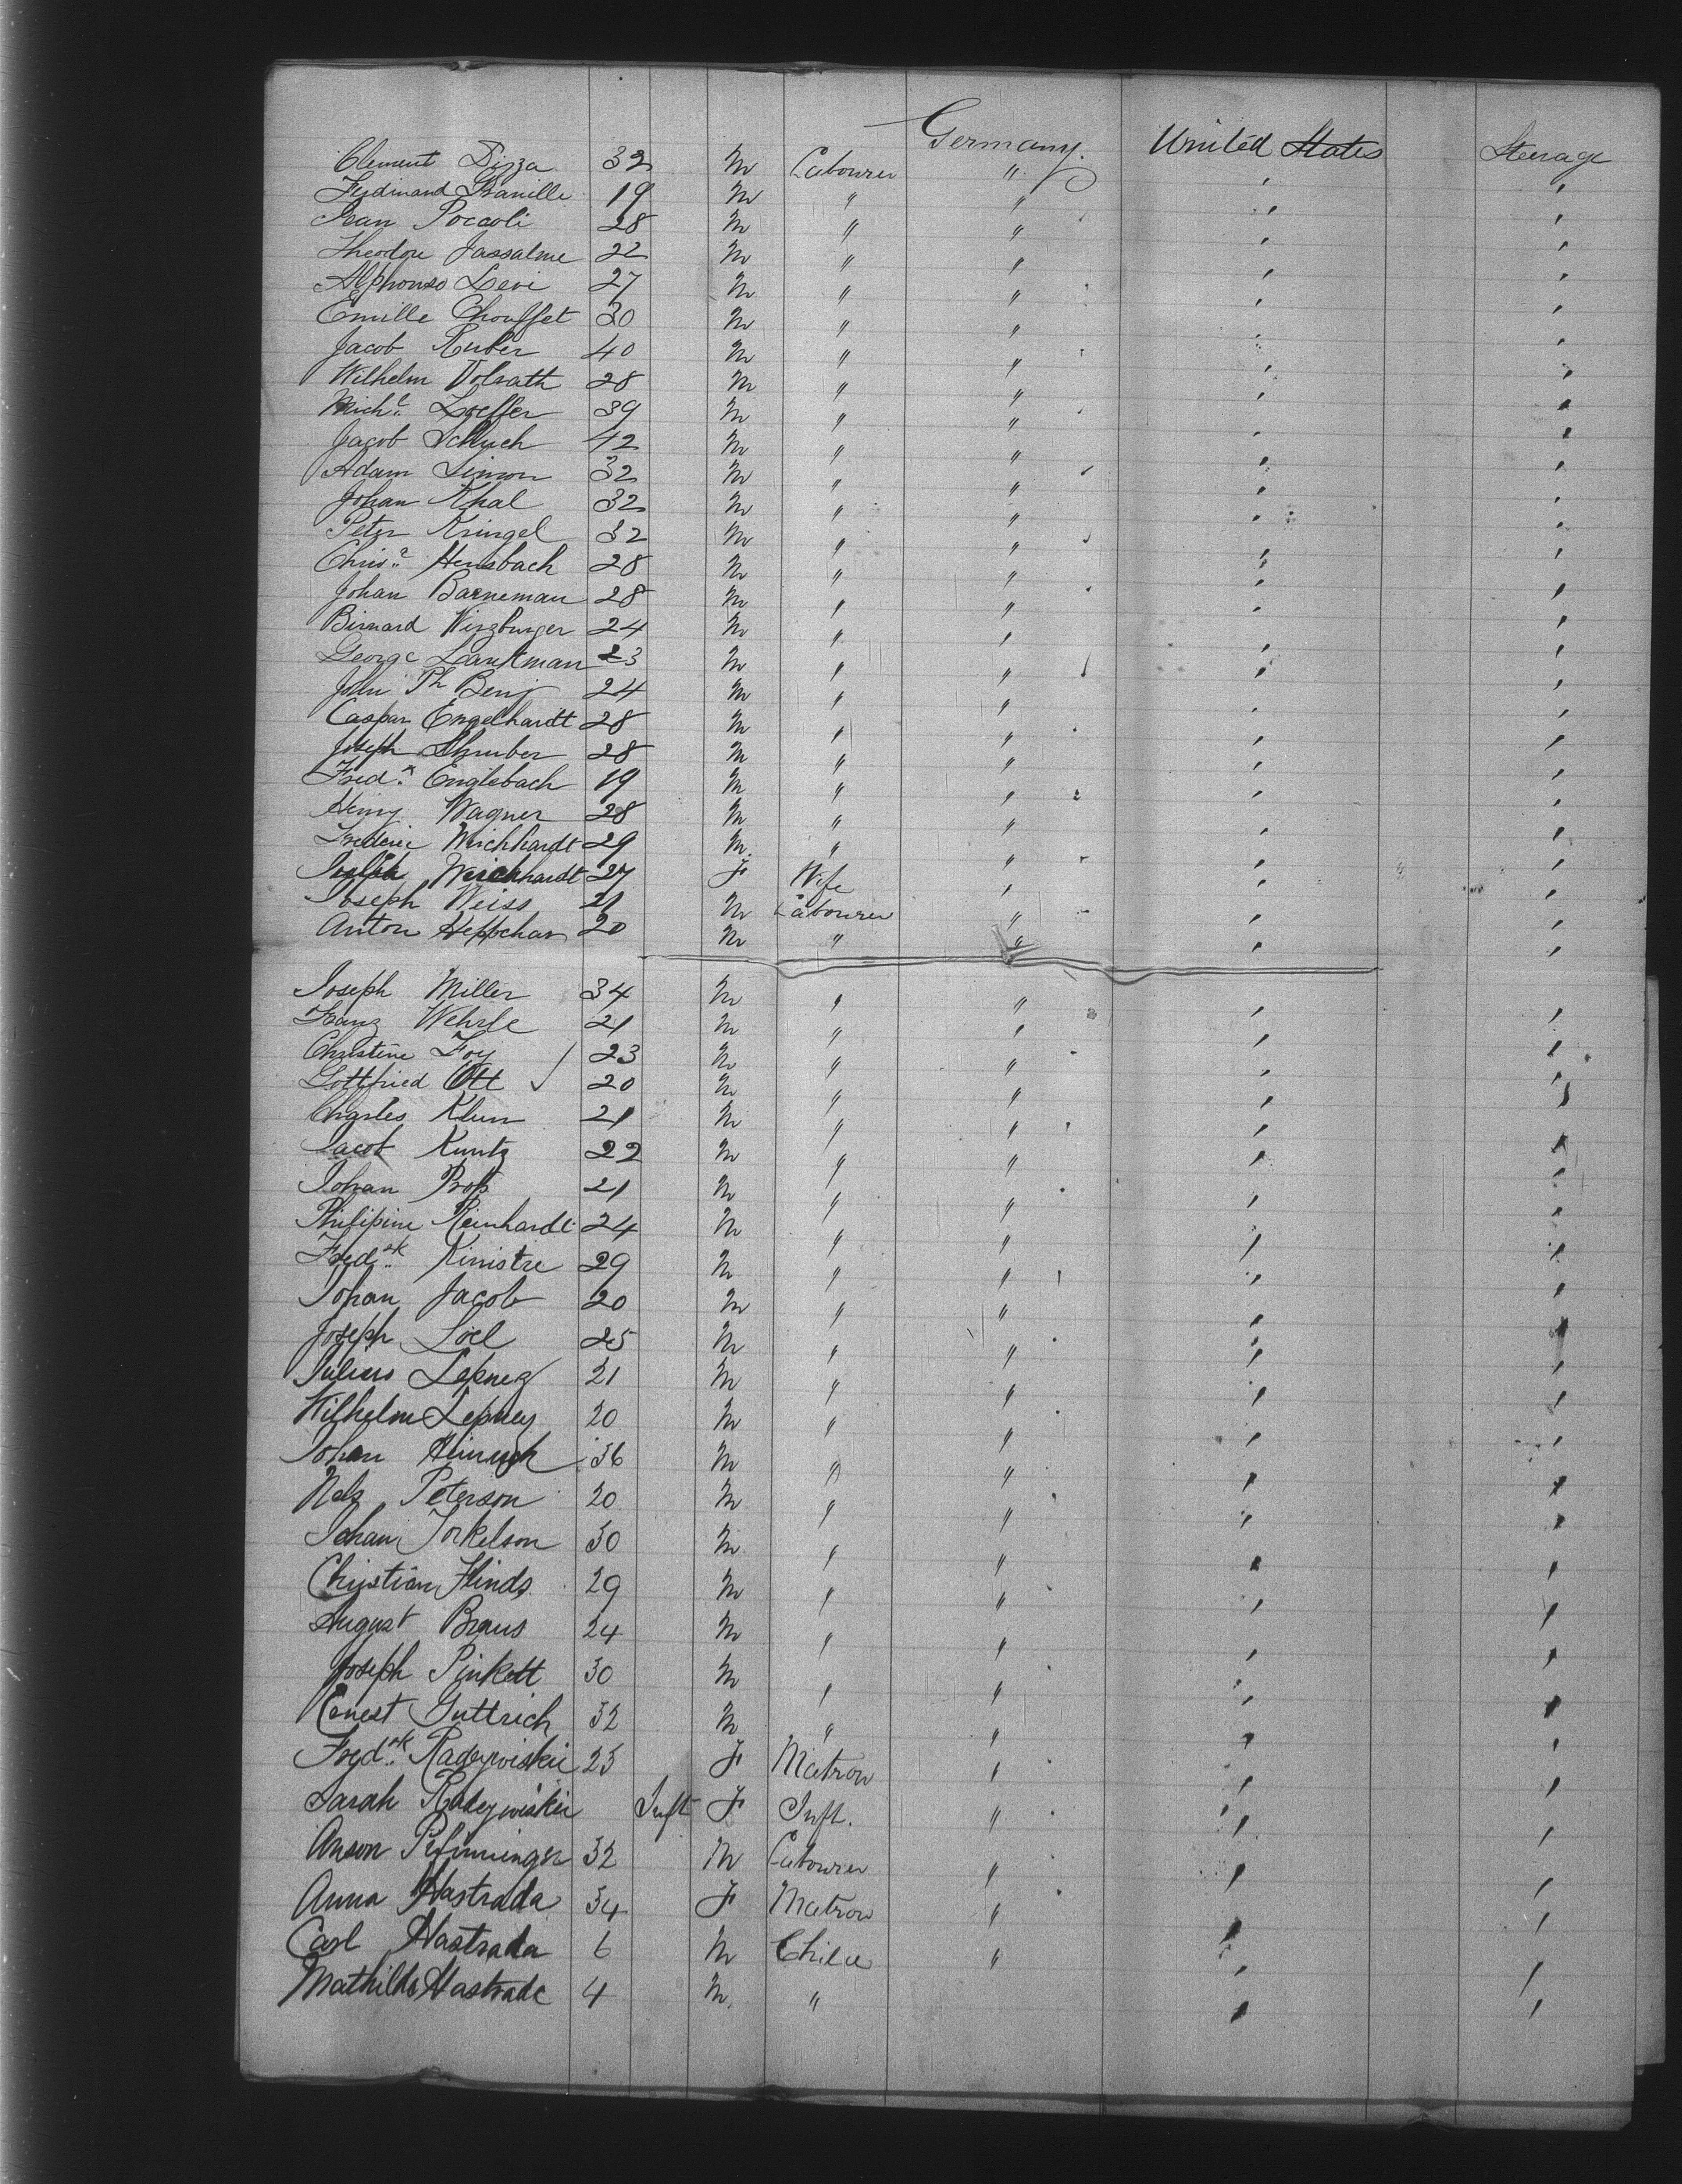 Germany. United States Steerage
Clement Pizza 32 M Labourer " " "
Ferdinand Branille 19 M " " " "
Jean Poccoli 28 M " " " "
Theodore Jassalme 22 M " " " "
Alphonso Levi 27 M " " " "
Emille Chouffet 30 M " " " "
Jacob Huber 40 M " " " "
Wilhelm Volrath 28 M " " " "
Mich.l Loeffer 39 M " " " "
Jacob Schuch 42 M " " " "
Adam Simon 32 M " " " "
Johan Khal 32 M " " " "
Peter Kringel 32 M " " " "
Chris.n Hensbach 28 M " " " "
Johan Barneman 28 M " " " "
Birnard Wirzburger 24 M " " " "
George Lantman 23 M " " " "
John Ph Benj 24 M " " " "
Caspar Engelhardt 28 M " " " "
Joseph Shruber 28 M " " " "
Fred.k Englebach 19 M " " " "
Henry Wagner 28 M " " " "
Frederic Weichhardt 29 M. " " " "
Weichhardt 27 F Wife " " "
Joseph Weiss 21 M Labourer " " "
Anton Heppchan 20 M " " " "
Joseph Miller 34 M " " " "
Franz Wehrle 21 M " " " "
Christine Foy 23 M " " " "
Gottfried Ott 20 M " " " "
Charles Klum 21 M " " " "
Jacob Kuntz 22 M " " " "
Johan Prop 21 M " " " "
Philipine Reinhardt 24 M " " " "
Fred.rk Kinistre 29 M " " " "
Johan Jacob 20 M " " " "
Joseph Löel 25 M " " " "
Julius Lepney 21 M " " " "
Wilhelm Lepney 20 M " " " "
Johan Heinrich 36 M " " " "
Nels Peterson 20 M " " " "
Johan Torkelson 30 M " " " "
Christian Hinds 29 M " " " "
August Braus 24 M " " " "
Joseph Pinkett 30 M " " " "
Ernest Guttrich 32 M " " " "
Fred.rk Radeywiskie 23 F Matron " " "
Sarah Radeywiskie Inft F Inft. " " "
Anson Pefinninger 32 M Labourer " " "
Anna Hastrada 34 F Matron " " "
Carl Hastrada 6 M Child " " "
Mathilda Hastrade 4 M. " " "